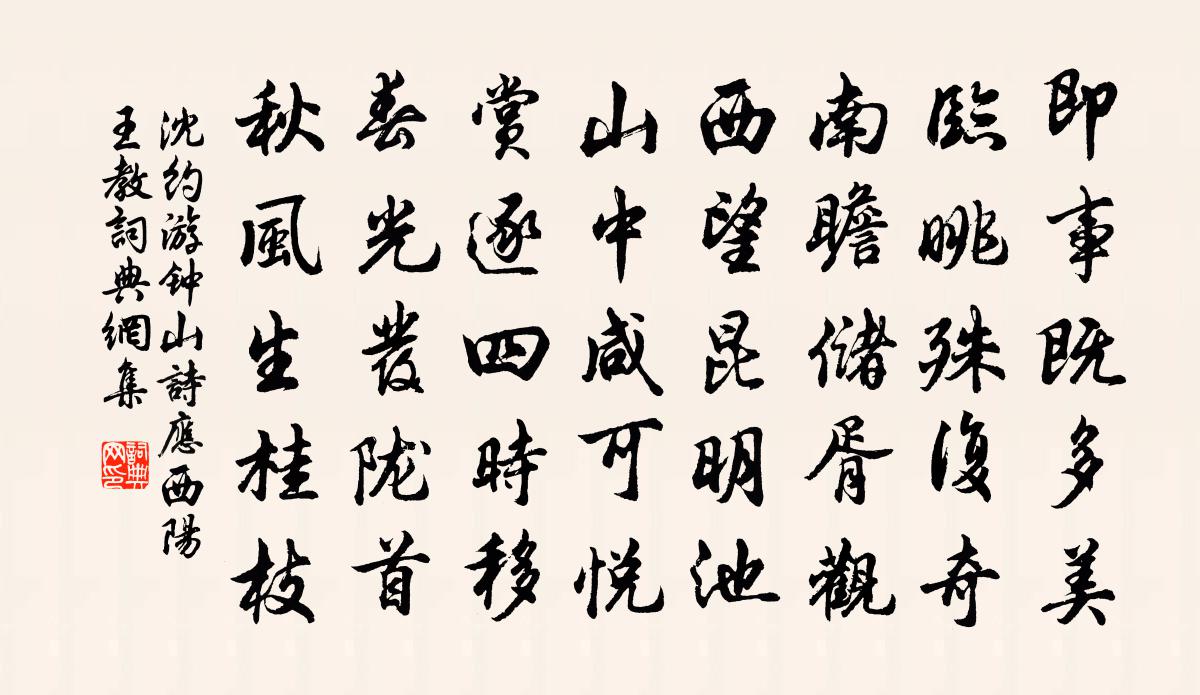 即事既多美
臨眺殊復奇
南瞻儲胥觀
西望昆明池
山中咸可悦
賞逐四時移
春光發陇首
秋風生桂枝
沈約游钟山詩應西陽
王教詞典網集
詞典
网印